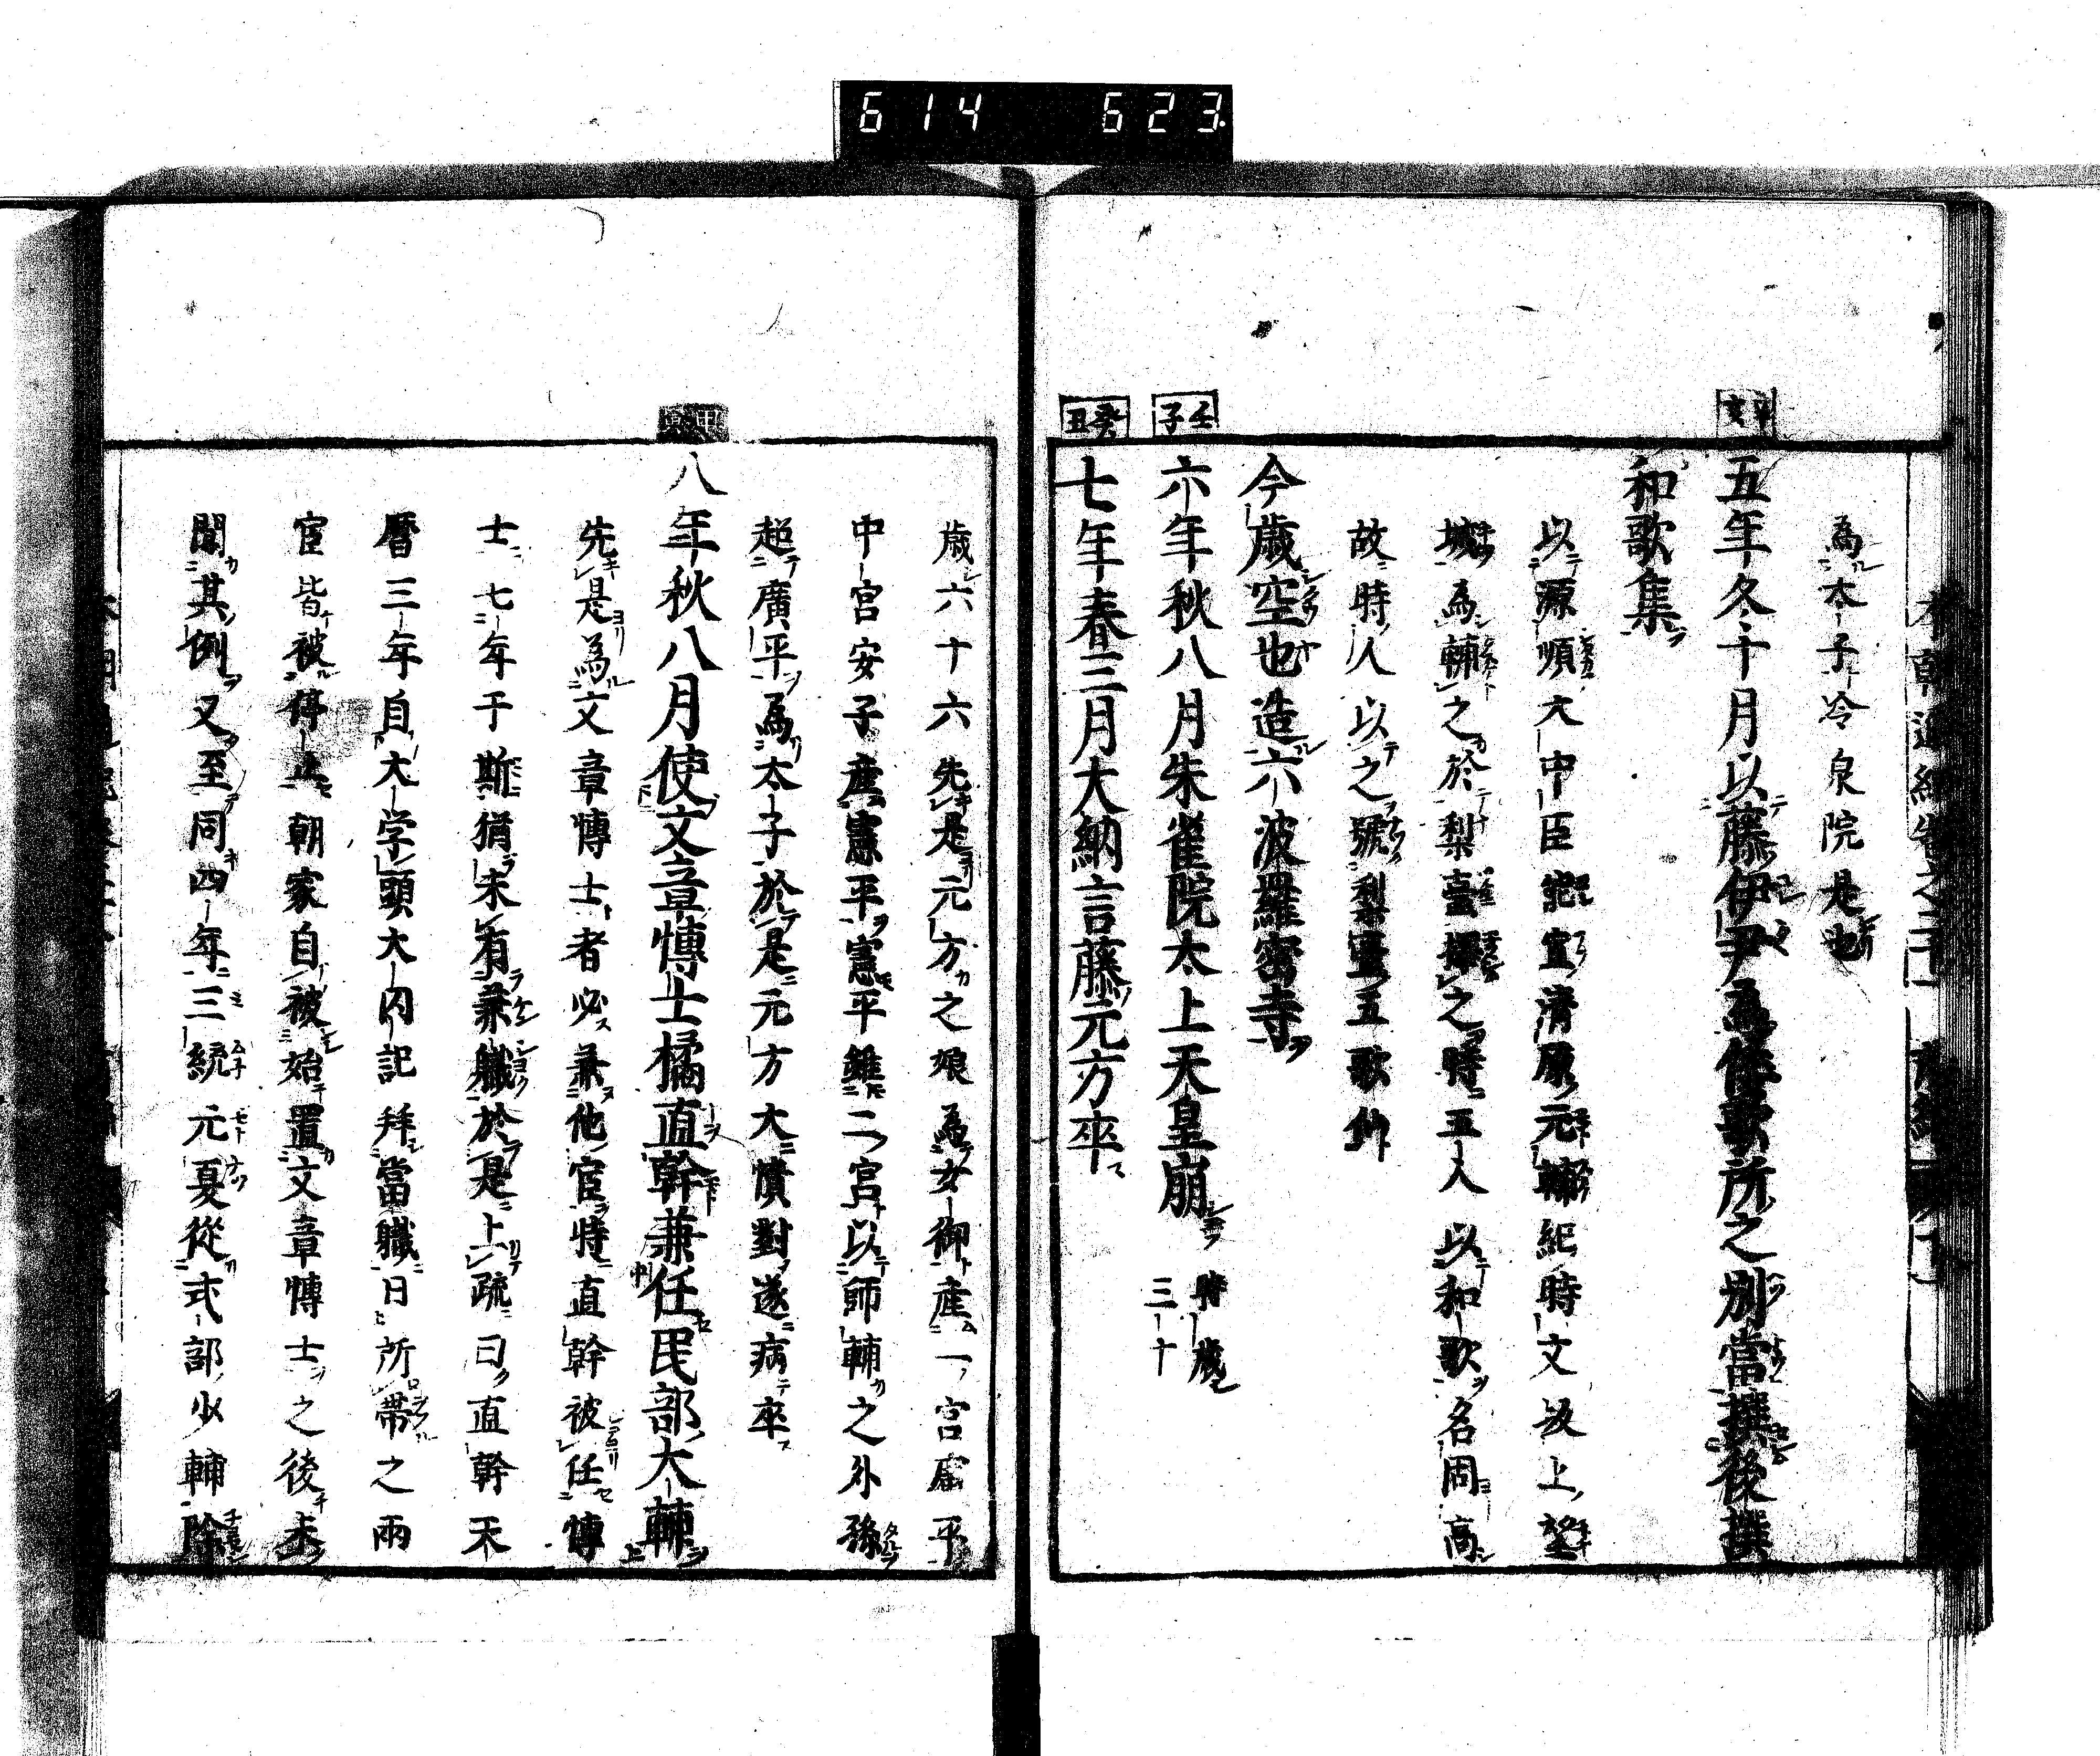 614 623
為太子冷泉院是也
辛亥
五年冬十月以藤伊尹為倭歌所之別當撰後撰
和歌集
以源順大中臣能宣清原元輔紀時文坂上望
城為輔之於梨壺撰之時五人以和歌名周高
故時人以之號梨壺五歌仙
今歲空也造六波羅密寺
壬子
六年秋八月朱雀院太上天皇崩 時歲三十
癸丑
七年春三月大納言藤元方卒
歲六十六先是元方之娘為女御產一宮廣平
中宮安子產憲平憲平雖二宮以師輔之外孫
超廣平為太子於是元方大憤對遂病卒
甲寅
八年秋八月使文章博士橘直幹兼任民部大輔
先是為文章博士者必兼他官特直幹被任博
士七年于斯猶未有兼職於是上疏曰直幹天
曆三年自大学頭大內記拜當職日所帶之兩
官皆被停止朝家自被始置文章博士之後未
聞其例又至同四年三統元夏從式部少輔除